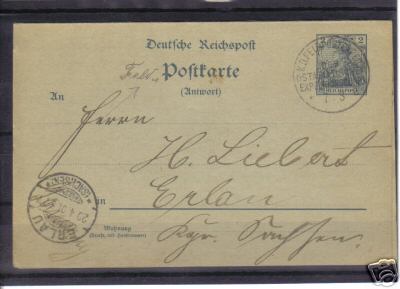 Deutsche Reichspost
Feld-Postkarte
(Antwort)
2
REICHSPOST
An
Herrn
H. Liebert
in Erlau
Wohnung
(Straße, und Hausnummer)
Kgr. Sachsen.
ERLAU
(SACHSEN)